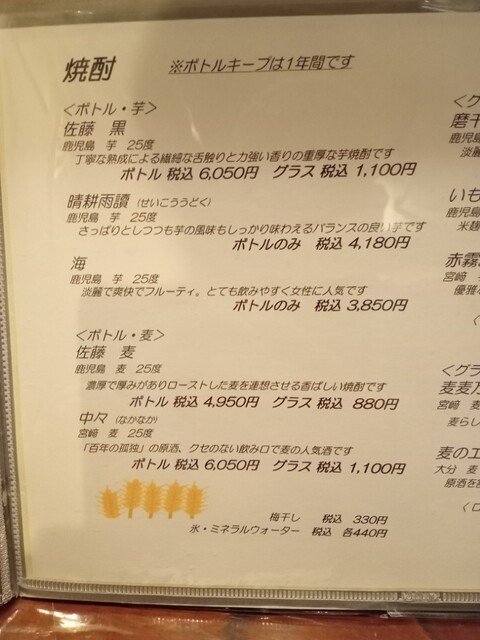 焼酎
※ボトルキープは1年間です
<ボトル・芋>
佐藤 黒
鹿児島 芋 25度
丁寧な熟成による繊細な舌触りと力強い香りの重厚な芋焼酎です
ボトル 税込 6,050円 グラス 税込 1,100円
晴耕雨讀 (せいこううどく)
鹿児島 芋 25度
さっぱりとしつつも芋の風味もしっかり味わえるバランスの良い芋です
ボトルのみ 税込 4,180円
海
鹿児島 芋 25度
淡麗で爽快でフルーティ。とても飲みやすく女性に人気です
ボトルのみ 税込 3,850円
<ボトル・麦>
佐藤 麦
鹿児島 麦 25度
濃厚で厚みがありローストした麦を連想させる香ばしい焼酎です
ボトル 税込 4,950円 グラス 税込 880円
中々 (なかなか)
宮﨑 麦 25度
「百年の孤独」の原酒、クセのない飲み口で麦の人気酒です
ボトル 税込 6,050円 グラス 税込 1,100円
梅干し 税込 330円
氷・ミネラルウォーター 税込 各440円
<グ
磨
鹿児島
淡麗
いも
鹿児島
米麹
赤霧
宮﨑
優雅
<グラ
麦麦
宮﨑 麦
麦らし
麦のエ
大分 麦
原酒を